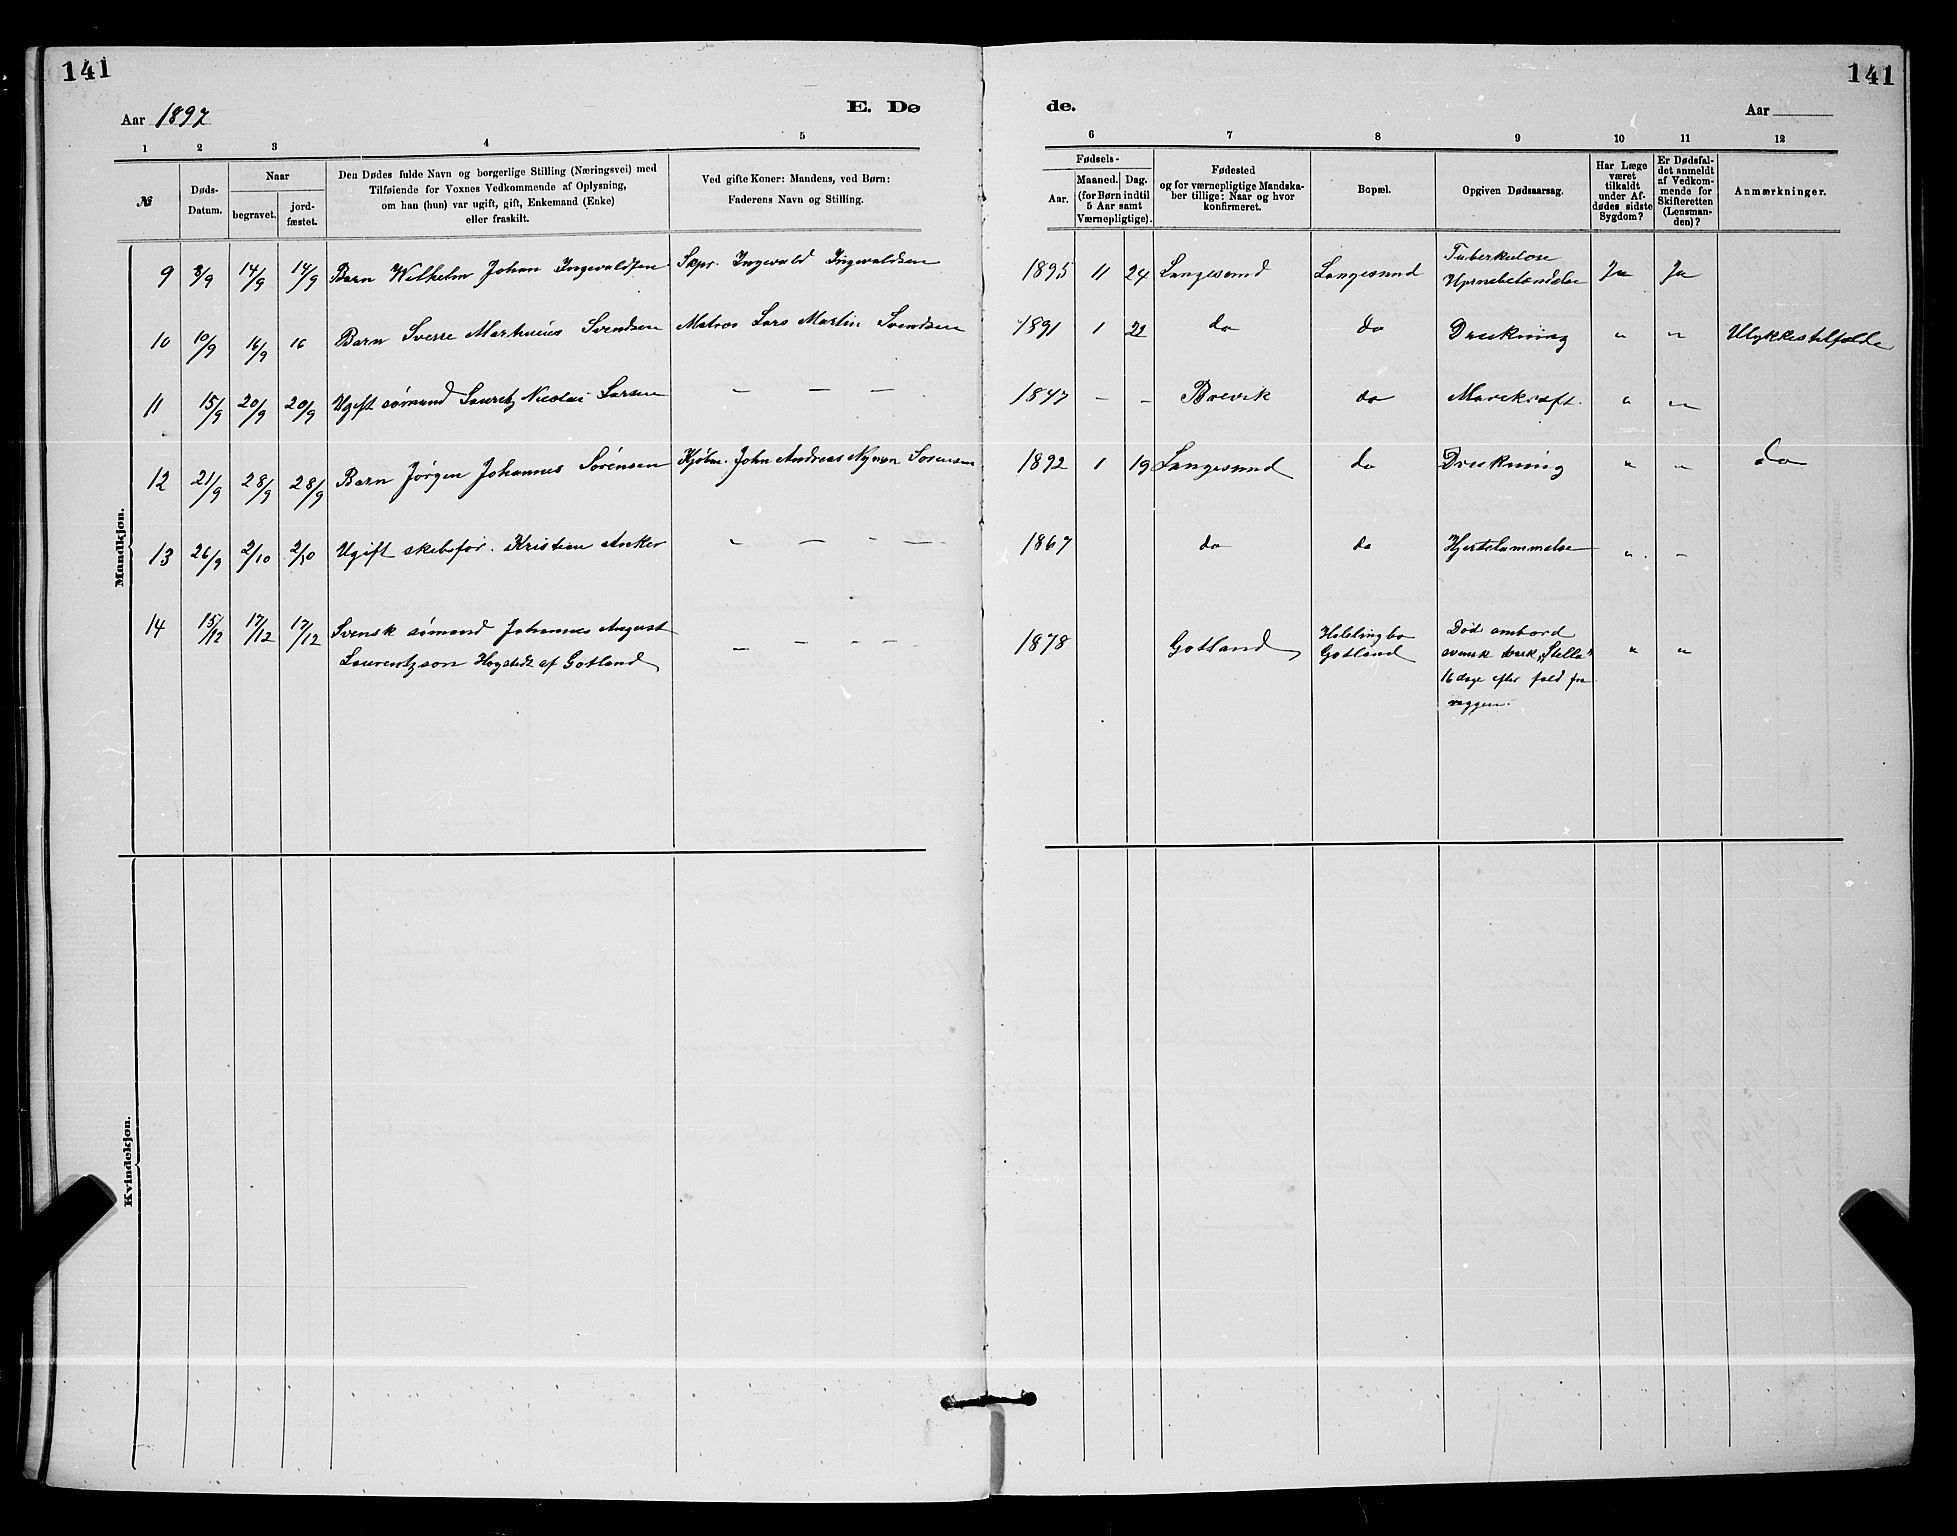 141
141
Aar 1897
E. Dø
de.
Aar
1 2 3 4 5 6 7 8 9 10 11 12
№
Døds-
Datum.
Naar
begravet.
jord-
fæstet.
Den Dødes fulde Navn og borgerlige Stilling (Næringsvei) med
Tilføiende for Voxnes Vedkommende af Oplysning,
om han (hun) var ugift, gift, Enkemand (Enke)
eller fraskilt.
Ved gifte Koner: Mandens, ved Børn:
Faderens Navn og Stilling.
Fødsels-
Aar.
Maaned.
Dag.
(for Børn indtil
5 Aar samt
Værnepligtige).
Fødested
og for værnepligtige Mandska-
ber tillige: Naar og hvor
konfirmeret.
Bopæl.
Opgiven Dødsaarsag.
Har Læge
været
tilkaldt
under Af-
dødes sidste
Sygdom?
Er Dødsfal-
det anmeldt
af Vedkom-
mende for
Skifteretten
(Lensman-
den)?
Anmærkninger.
Mandkjøn.
9 8/9 14/9 14/9 Barn Wilhelm Johan Ingevaldsen Skpr. Ingevald Ingevaldsen 1895 11 24 Langesund Langesund Tuberkuløse Hjernebetændelse Ja Ja
10 10/9 16/9 16 Barn Sverre Marthinius Svendsen Matros Lars Martin Svendsen 1891 1 22 do do Drukning " " Ulykkestilfælde
11 15/9 20/9 20/9 Ugift sømand Lauretz Nicolai Larsen – – – 1847 – – Brevik do Mavekræft. " "
12 21/9 28/9 28/9 Barn Jørgen Johannes Sørensen Kjøbm. John Andreas Nyman Sørensen 1892 1 19 Langesund do Drukning " " do
13 26/9 2/10 2/10 Ugift skibsfør. Kristian Anker " – – – 1867 do do Hjertelammelse " –
14 15/12 17/12 17/12 Svensk sømand Johannes August
Laurentzson Hogstedt af Gotland – – – – 1878 Gotland Gotland Død ombord
svensk bark "Stella"
16 dage efter fald fra
" "
Kvindekjøn.